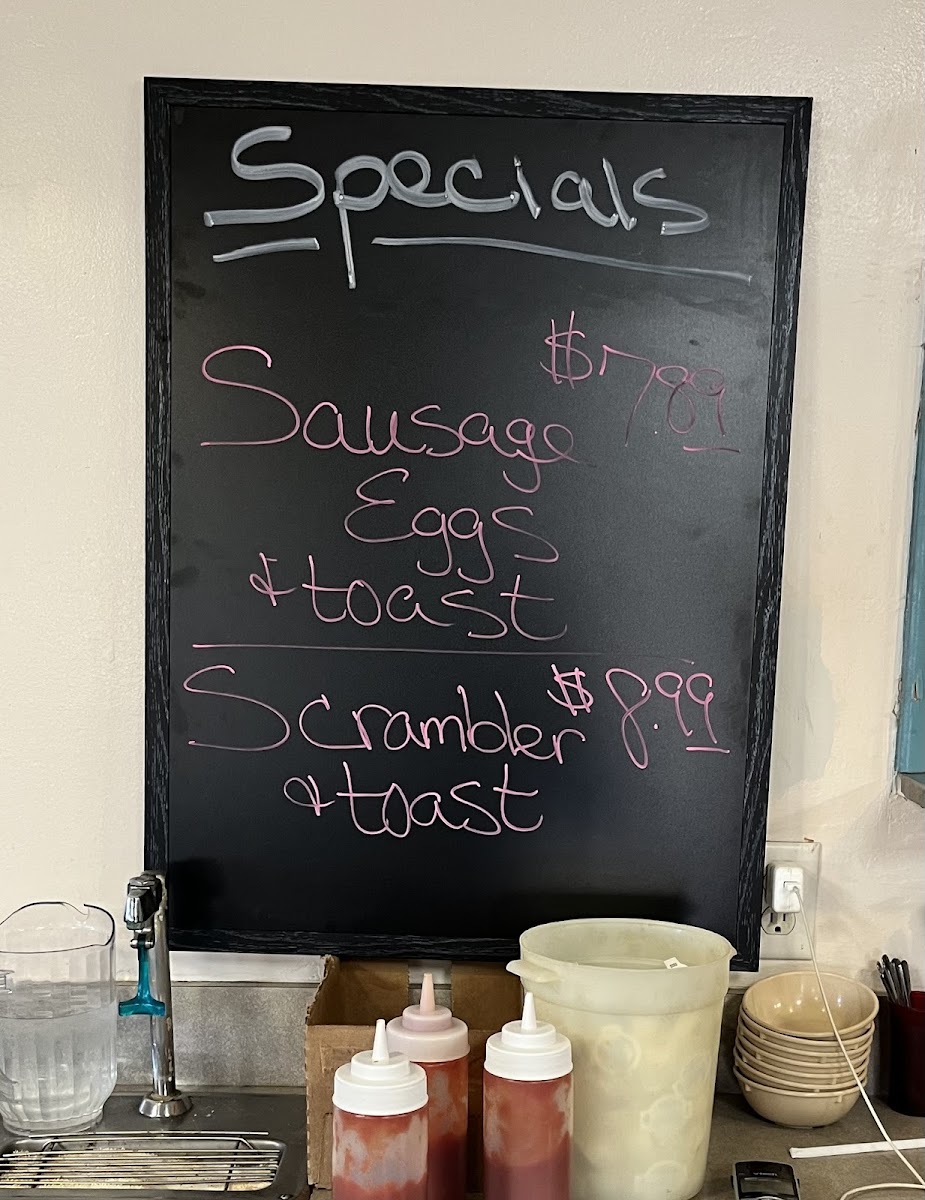 Specials
$7.89
Sausage
Eggs
& toast
Scrambler $8.99
& toast